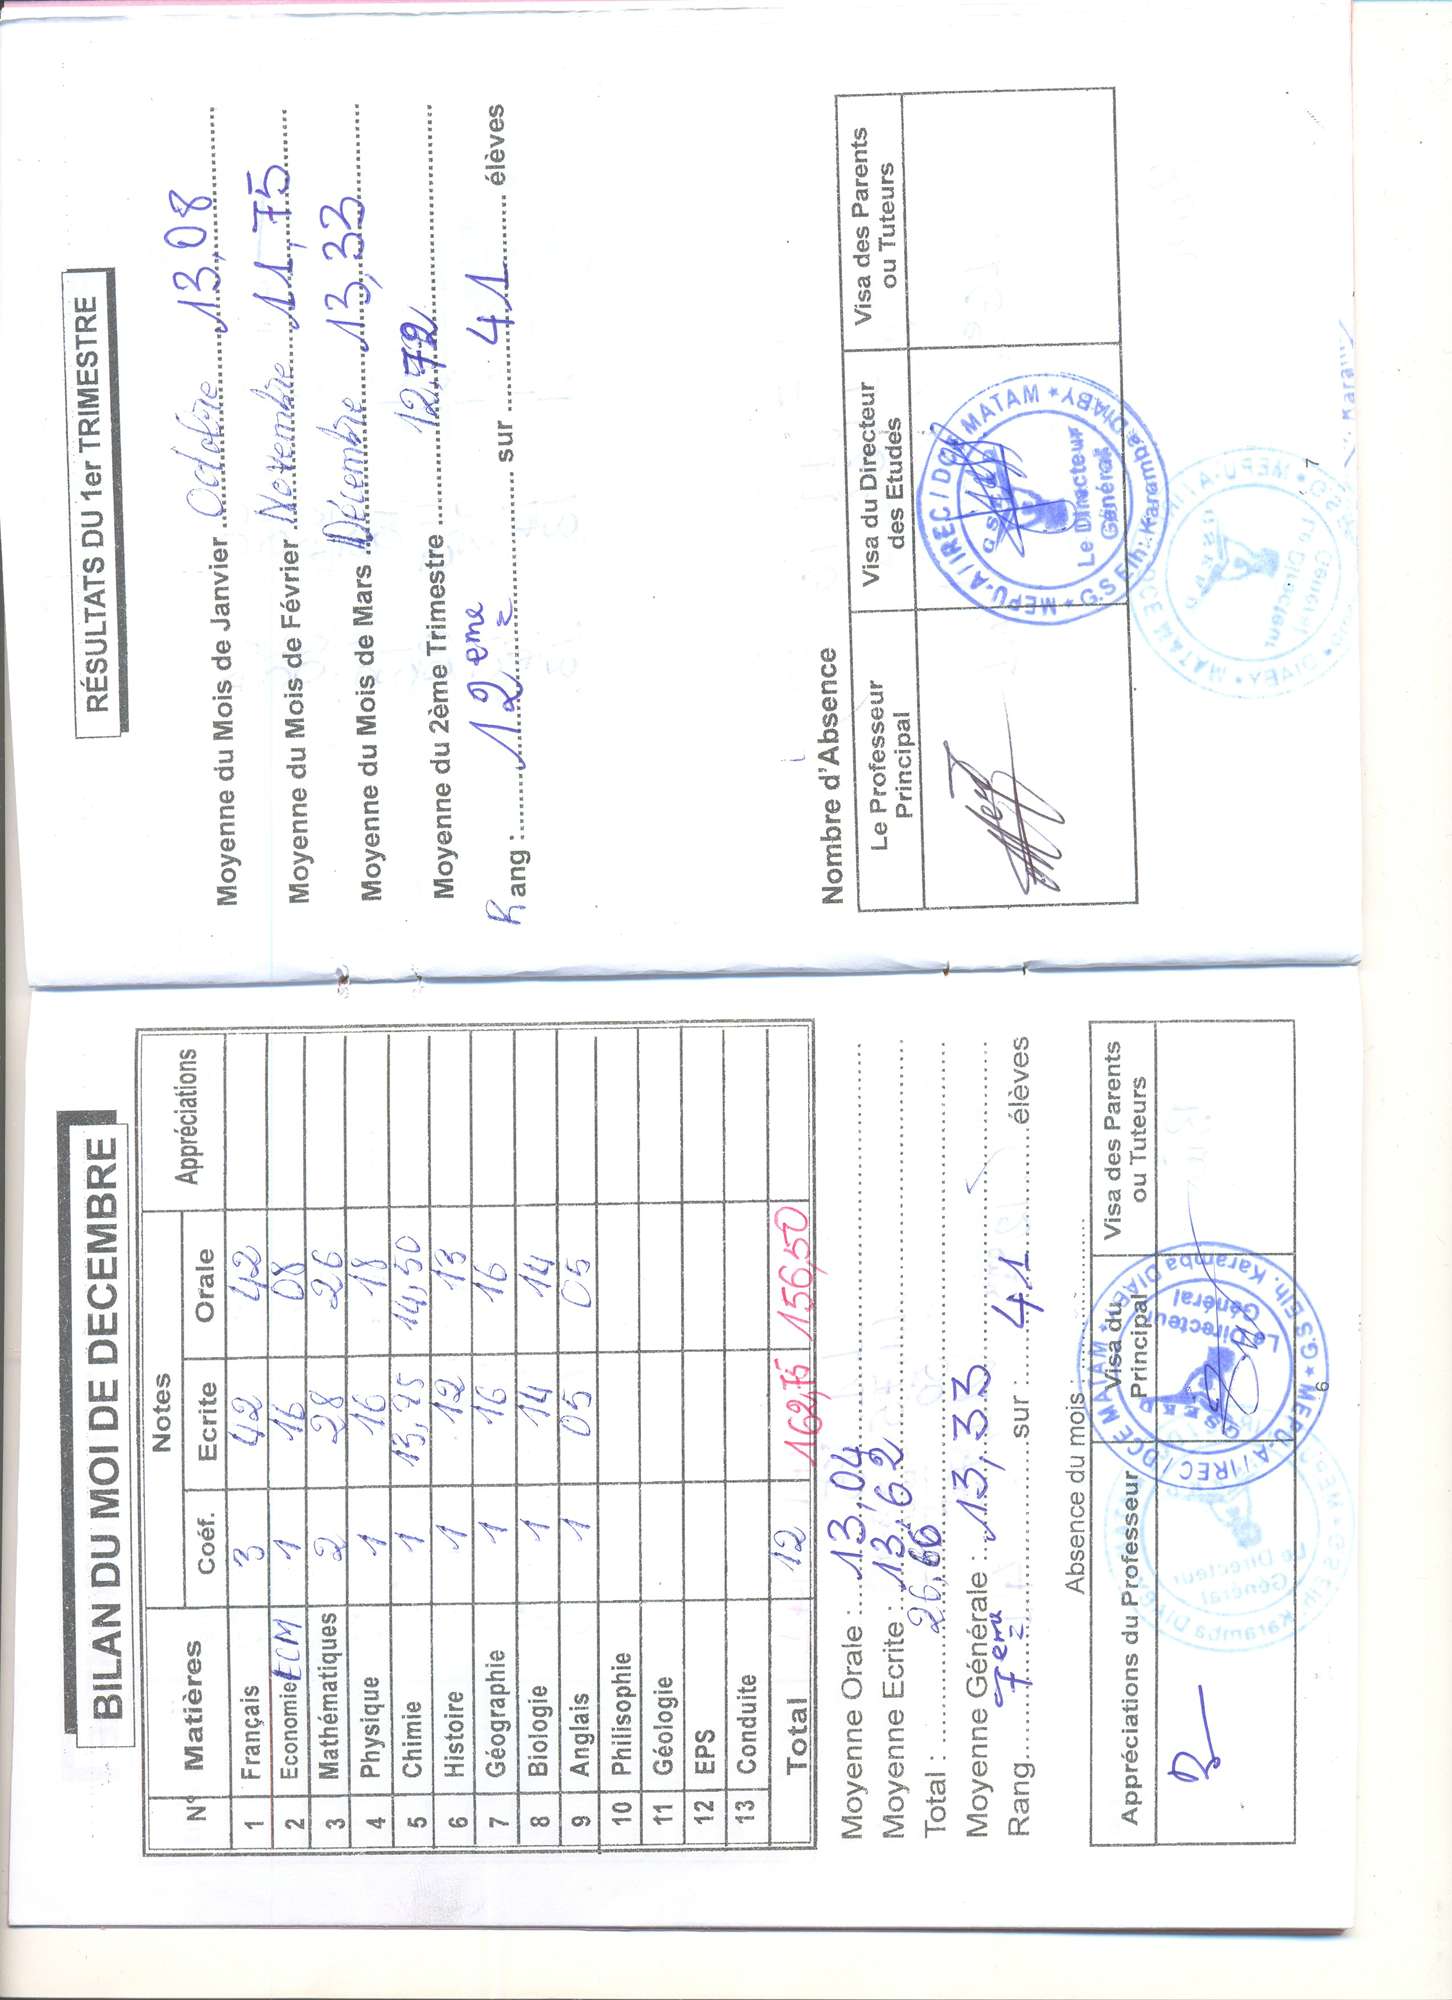 BILAN DU MOI DE DECEMBRE
N° Matières Notes Appréciations
Coéf. Ecrite Orale
1 Français 3 42 42
2 Economie ECM 1 16 08
3 Mathématiques 2 28 26
4 Physique 1 16 18
5 Chimie 1 13,75 14,50
6 Histoire 1 12 13
7 Géographie 1 16 16
8 Biologie 1 14 14
9 Anglais 1 05 05
10 Philisophie
11 Géologie
12 EPS
13 Conduite
Total 12 162,75 156,50
Moyenne Orale : 13,04
Moyenne Ecrite : 13,62
Total : 26,66
Moyenne Générale : 13,33
Rang 7eme sur : 41 élèves
Absence du mois :
Appréciations du Professeur Visa du Principal Visa des Parents ou Tuteurs
MEPU-A / IREC / DCE MATAM * G.S Elh. Karamba DIABY *
G S E K D
Le Directeur Général
6
RÉSULTATS DU 1er TRIMESTRE
Moyenne du Mois de Janvier Octobre 13,08
Moyenne du Mois de Février Novembre 11,75
Moyenne du Mois de Mars Décembre 13,33
Moyenne du 2ème Trimestre 12,72
Rang : 12eme sur 41 élèves
Nombre d'Absence
Le Professeur Principal Visa du Directeur des Etudes Visa des Parents ou Tuteurs
MEPU-A / IREC / DCE MATAM * G.S Elh. Karamba DIABY *
Le Directeur Général
7